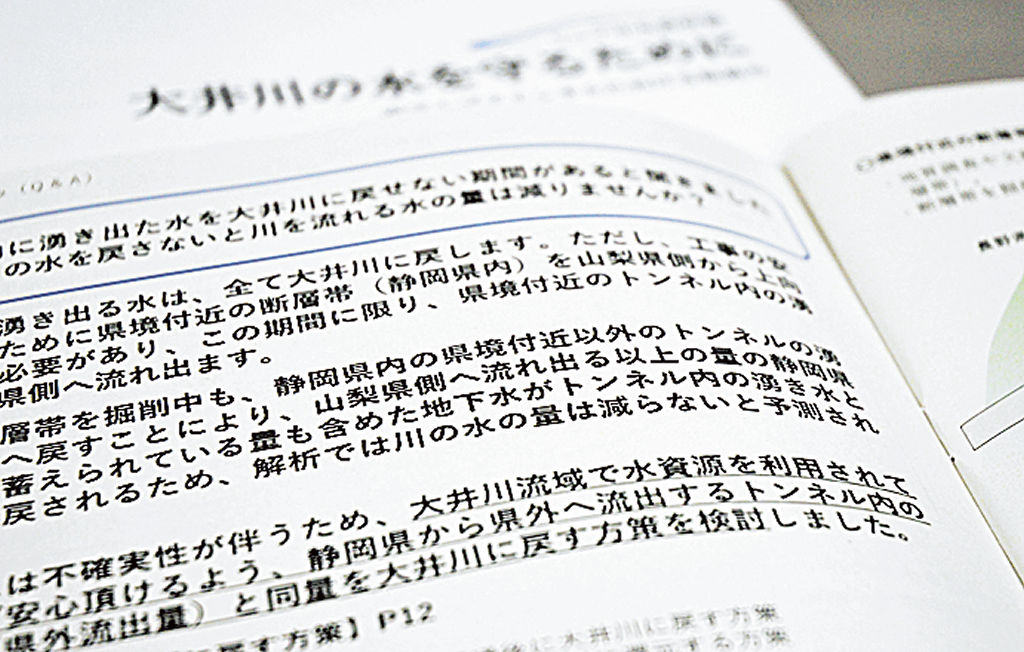 大井川の水を守るために
(Q&A)
に湧き出た水を大井川に戻せない期間があると聞きました
の水を戻さないと川を流れる水の量は減りませんか?
湧き出る水は、全て大井川に戻します。ただし、工事の安
ために県境付近の断層帯（静岡県内）を山梨県側から上向
必要があり、この期間に限り、県境付近のトンネル内の湧
県側へ流れ出ます。
層帯を掘削中も、静岡県内の県境付近以外のトンネルの湧
へ戻すことにより、山梨県側へ流れ出る以上の量の静岡県
蓄えられている量も含めた地下水がトンネル内の湧き水と
戻されるため、解析では川の水の量は減らないと予測され
は不確実性が伴うため、大井川流域で水資源を利用されて
安心頂けるよう、静岡県から県外へ流出するトンネル内の
県外流出量）と同量を大井川に戻す方策を検討しました。
戻す方策】P12
後に大井川に戻す方策
する方策
長野